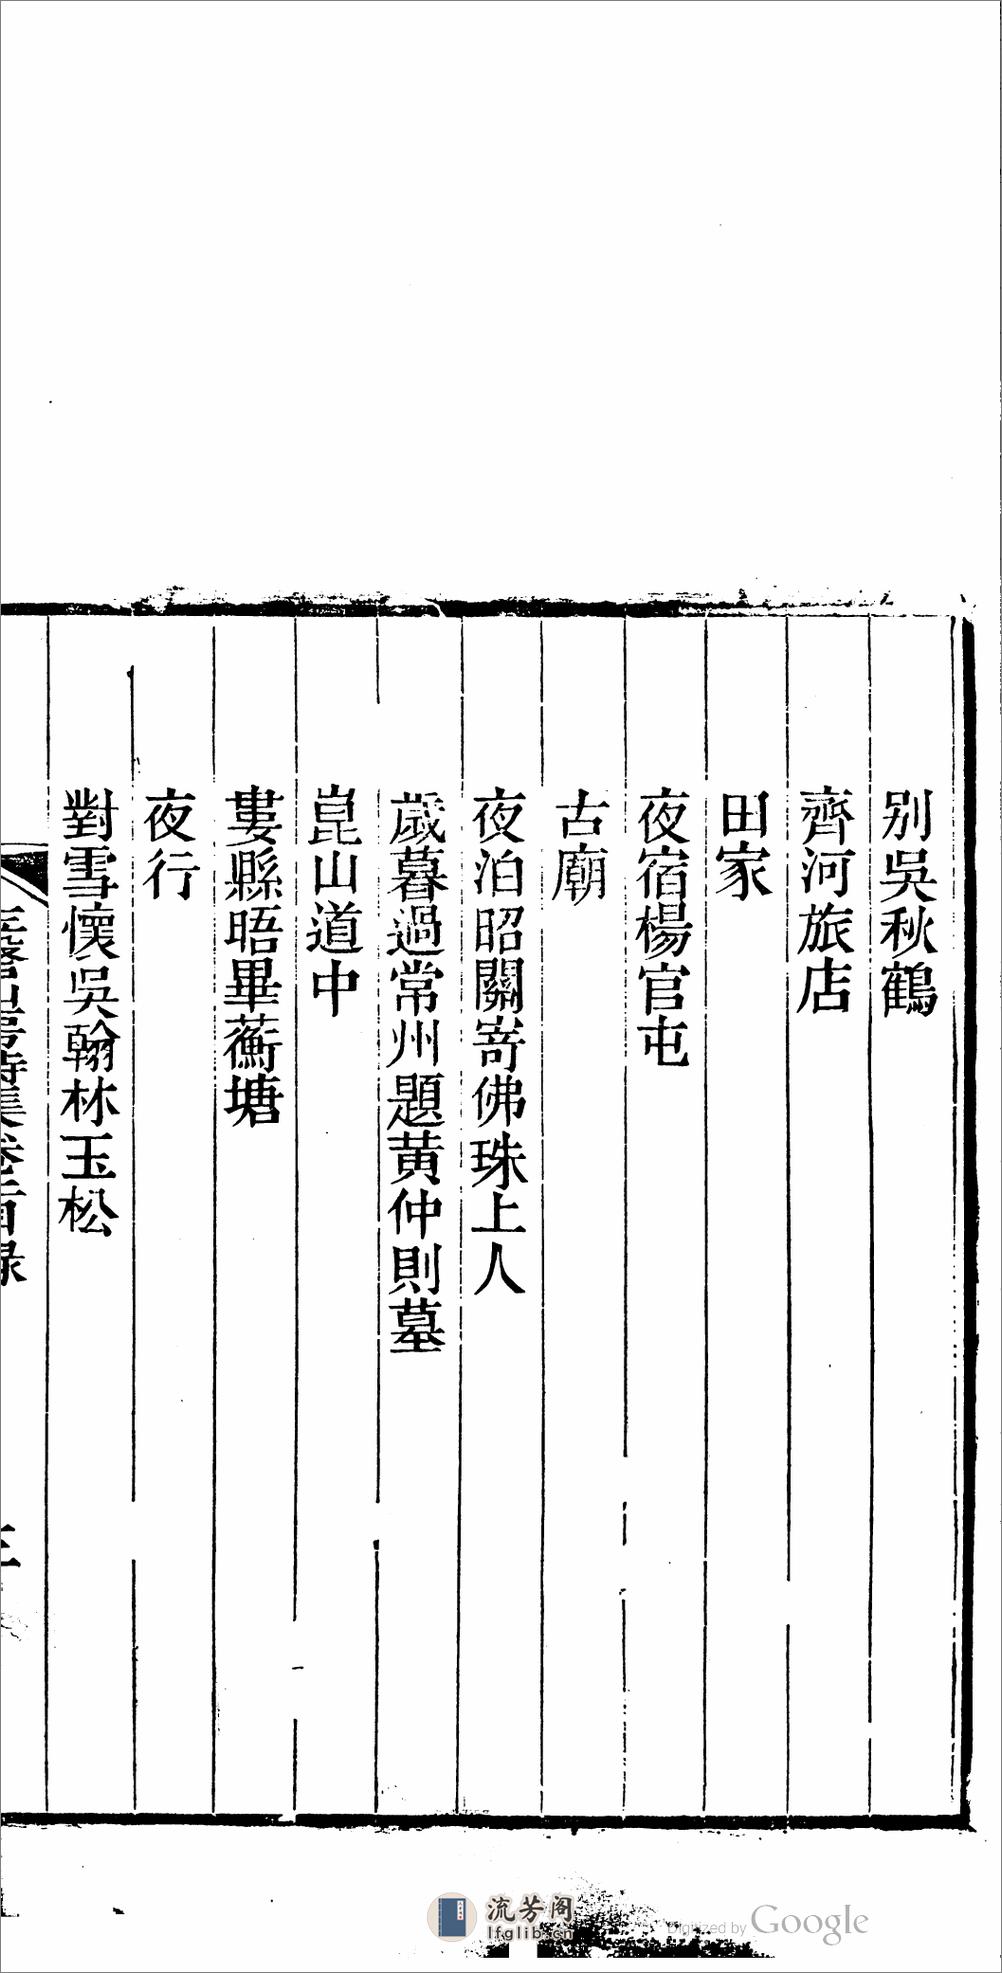 别吳秋鶴
齊河旅店
田家
夜宿楊官屯
古廟
夜泊昭關寄佛珠上人
歲暮過常州題黄仲則墓
崑山道中
婁縣晤畢蘅塘
夜行
對雪懷吳翰林玉松
流芳阁
lfglib.cn
Digitized by Google